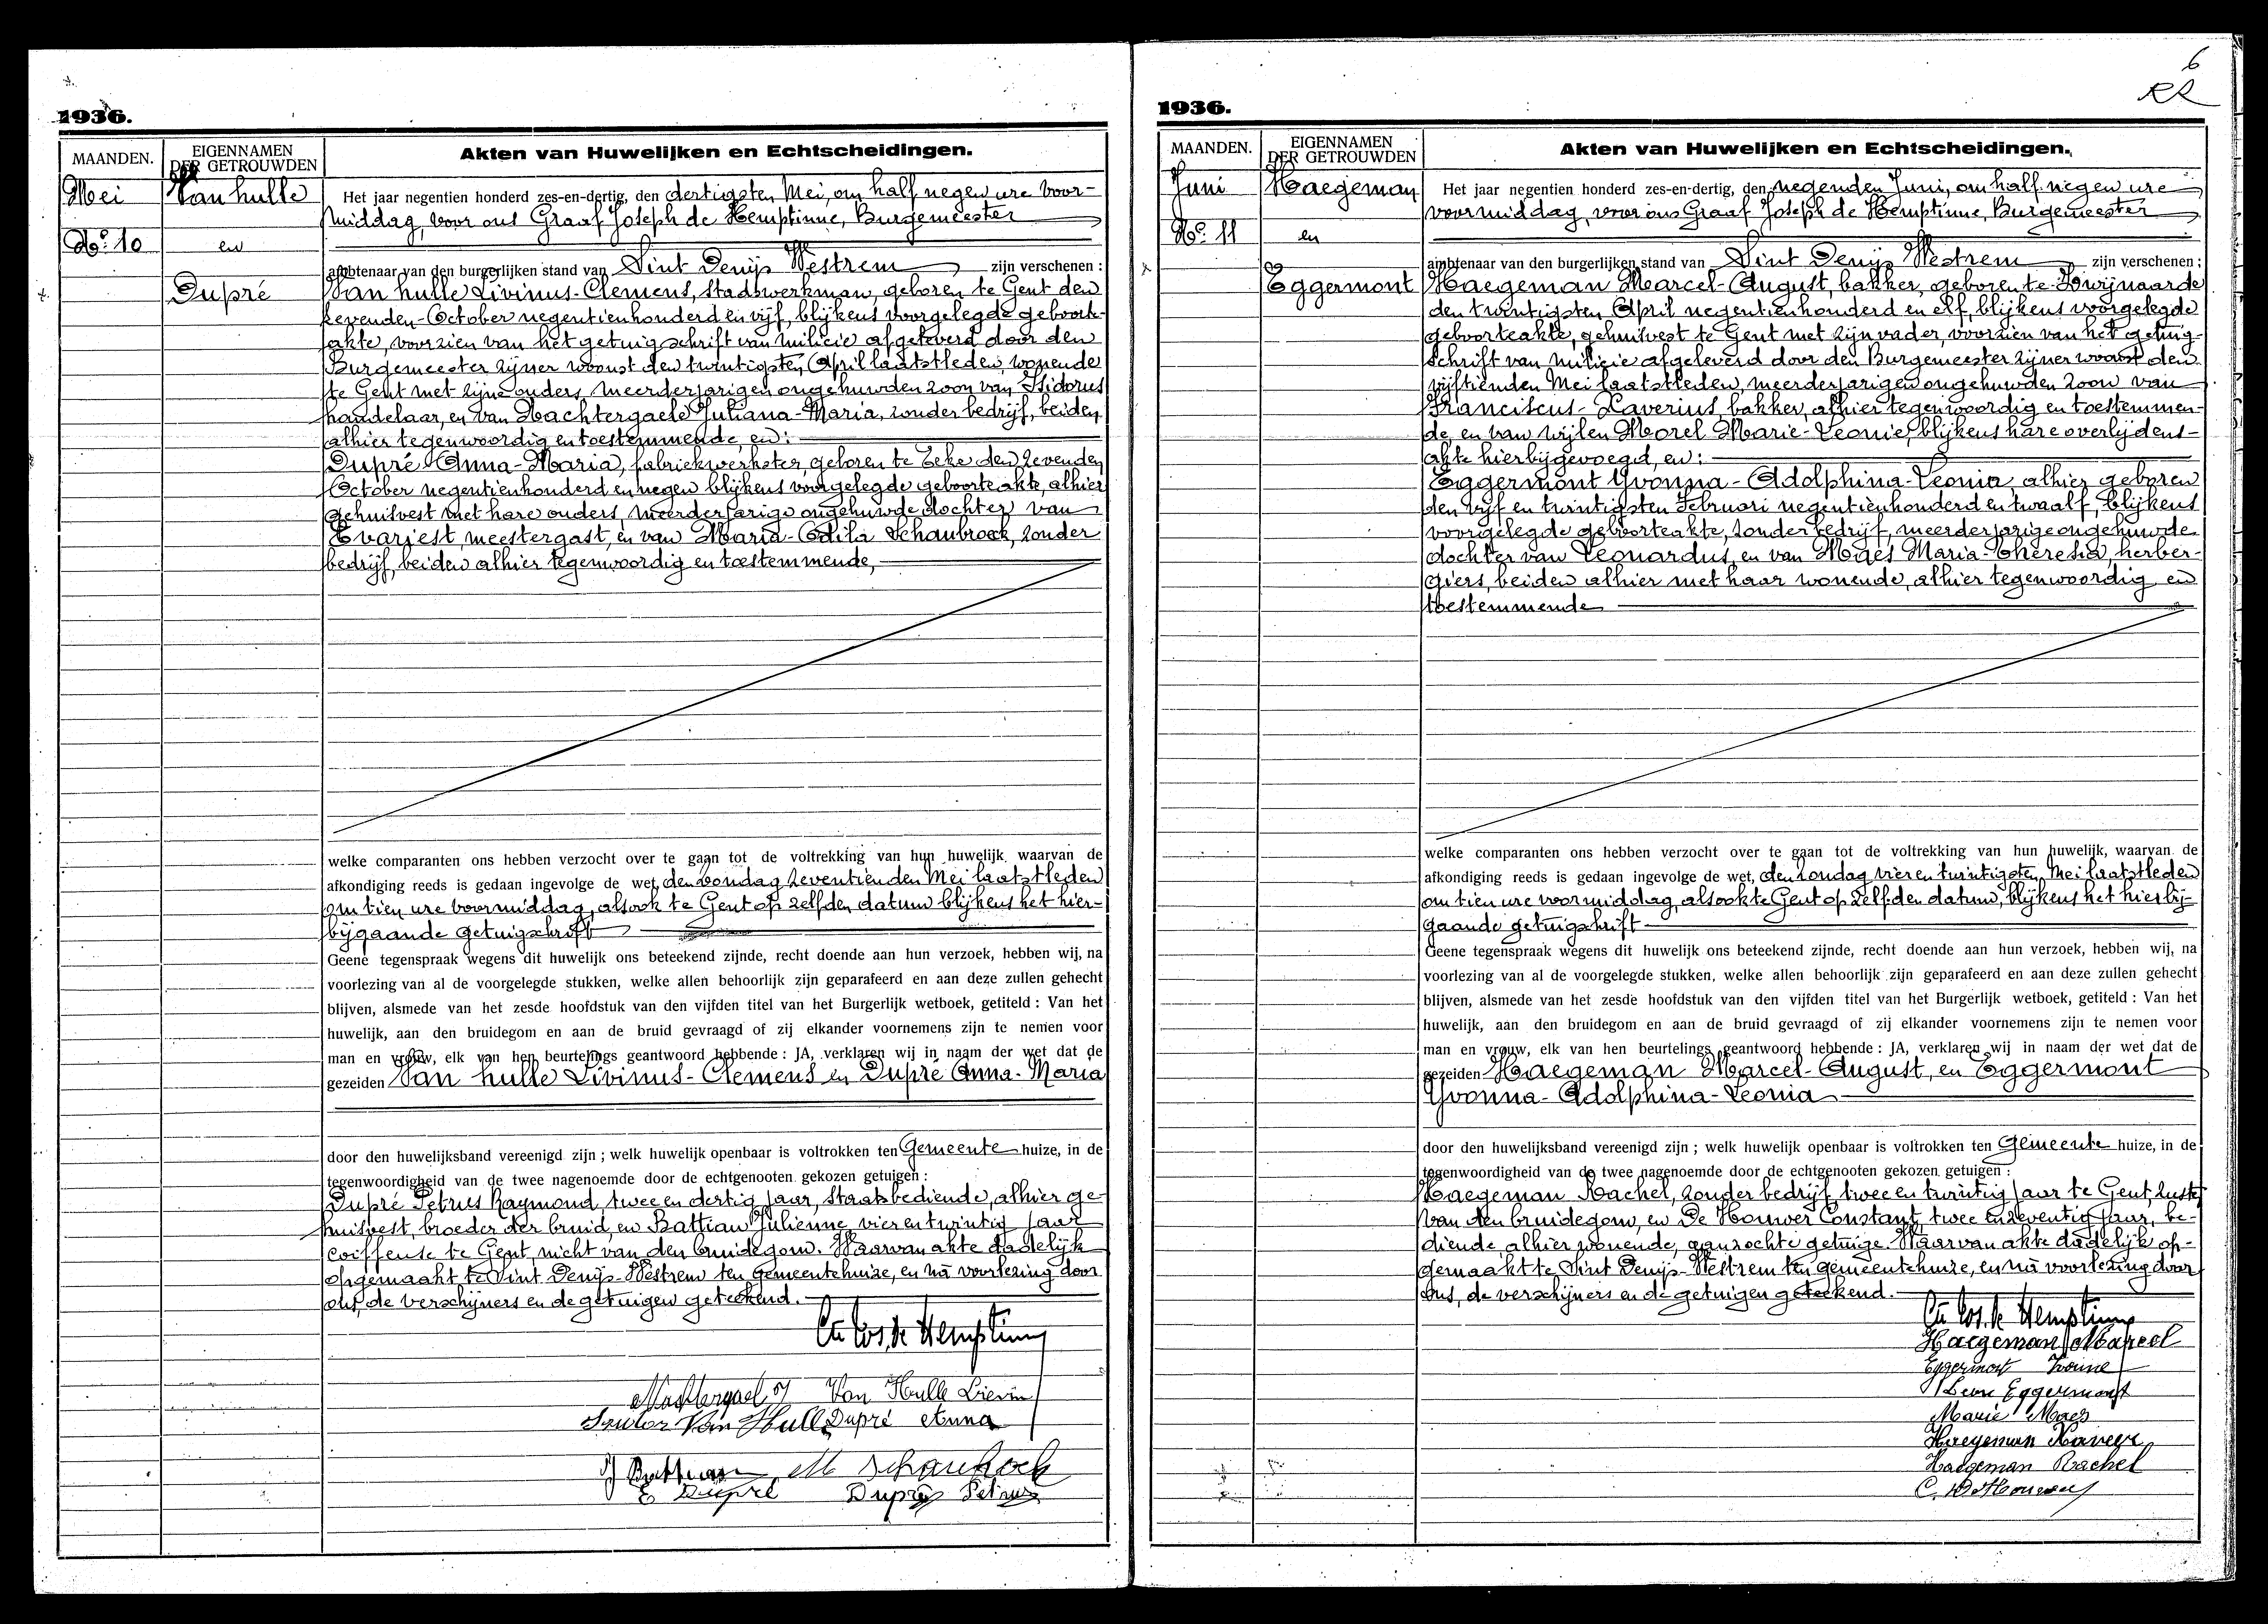 1936.
MAANDEN.
EIGENNAMEN
DER GETROUWDEN
Akten van Huwelijken en Echtscheidingen.
Mei
Van hulle
No. 10
en
Dupré
Het jaar negentien honderd zes-en-dertig, den dertigsten Mei, om half negen ure voor-
middag, voor ons Graaf Joseph de Hemptinne, Burgemeester
ambtenaar van den burgerlijken stand van Sint Denijs Westrem zijn verschenen :
Van hulle Livinus-Clemens, stadswerkman, geboren te Gent den
zevenden October negentienhonderd en vijf, blijkens voorgelegde geboorte-
akte, voorzien van het getuigschrift van milicie afgeleverd door den
Burgemeester zijner woonst den twintigsten April laatstleden, wonende
te Gent met zijne ouders, meerderjarigen ongehuwden zoon van Isidorus
handelaar, en van Nachtergaele Juliana-Maria, zonder bedrijf, beiden
alhier tegenwoordig en toestemmende, en :
Dupré Anna-Maria, fabriekwerkster, geboren te Eeke den zevenden
October negentienhonderd en negen blijkens voorgelegde geboorteakte, alhier
gehuisvest met hare ouders, meerderjarige ongehuwde dochter van
Evariest, meestergast, en van Maria-Odila Schaubroek, zonder
bedrijf, beiden alhier tegenwoordig en toestemmende,
welke comparanten ons hebben verzocht over te gaan tot de voltrekking van hun huwelijk, waarvan de
afkondiging reeds is gedaan ingevolge de wet, den zondag zeventienden Mei laatstleden
om tien ure voormiddag, alsook te Gent op zelfden datum blijkens het hier-
bijgaande getuigschrift
Geene tegenspraak wegens dit huwelijk ons beteekend zijnde, recht doende aan hun verzoek, hebben wij, na
voorlezing van al de voorgelegde stukken, welke allen behoorlijk zijn geparafeerd en aan deze zullen gehecht
blijven, alsmede van het zesde hoofdstuk van den vijfden titel van het Burgerlijk wetboek, getiteld : Van het
huwelijk, aan den bruidegom en aan de bruid gevraagd of zij elkander voornemens zijn te nemen voor
man en vrouw, elk van hen beurtelings geantwoord hebbende : JA, verklaren wij in naam der wet dat de
gezeiden Van hulle Livinus-Clemens en Dupré Anna-Maria
door den huwelijksband vereenigd zijn ; welk huwelijk openbaar is voltrokken ten Gemeente huize, in de
tegenwoordigheid van de twee nagenoemde door de echtgenooten gekozen getuigen :
Dupré Petrus Raymond, twee en dertig jaar, staatsbediende, alhier ge-
huisvest, broeder der bruid, en Battiau Julienne, vier en twintig jaar
coiffeuse te Gent, nicht van den bruidegom. Waarvan akte dadelijk
opgemaakt te Sint Denijs-Westrem ten Gemeentehuize, en nà voorlezing door
ons, de verschijners en de getuigen geteekend.
Cte Jos. de Hemptinne
Nachtergael J Van Hulle Lievin
Van Hulle Dupré Anna
J Battiau M Schaubroek
E Dupré Dupré Petrus
6
RR
1936.
MAANDEN.
EIGENNAMEN
DER GETROUWDEN
Akten van Huwelijken en Echtscheidingen.
Juni
Haegeman
No. 11
en
Eggermont
Het jaar negentien honderd zes-en-dertig, den negenden Juni, om half negen ure
voormiddag, voor ons Graaf Joseph de Hemptinne, Burgemeester
ambtenaar van den burgerlijken stand van Sint Denijs Westrem zijn verschenen :
Haegeman Marcel-August, bakker, geboren te Zwijnaarde
den twintigsten April negentienhonderd en elf, blijkens voorgelegde
geboorteakte, gehuisvest te Gent met zijn vader, voorzien van het getuig-
schrift van milicie afgeleverd door den Burgemeester zijner woonst den
vijftienden Mei laatstleden, meerderjarigen ongehuwden zoon van
Franciscus-Xaverius, bakker, alhier tegenwoordig en toestemmen-
de, en van wijlen Morel Marie-Leonie, blijkens hare overlijdens-
akte hierbijgevoegd, en :
Eggermont Yvonna-Adolphina-Leonia, alhier geboren
den vijf en twintigsten Februari negentienhonderd en twaalf, blijkens
voorgelegde geboorteakte, zonder bedrijf, meerderjarige ongehuwde
dochter van Leonardus, en van Maes Maria-Theresia, herber-
giers, beiden alhier met haar wonende, alhier tegenwoordig en
toestemmende
welke comparanten ons hebben verzocht over te gaan tot de voltrekking van hun huwelijk, waarvan de
afkondiging reeds is gedaan ingevolge de wet, den zondag vier en twintigsten Mei laatstleden
om tien ure voormiddag, alsook te Gent op zelfden datum, blijkens het hierbij-
gaande getuigschrift
Geene tegenspraak wegens dit huwelijk ons beteekend zijnde, recht doende aan hun verzoek, hebben wij, na
voorlezing van al de voorgelegde stukken, welke allen behoorlijk zijn geparafeerd en aan deze zullen gehecht
blijven, alsmede van het zesde hoofdstuk van den vijfden titel van het Burgerlijk wetboek, getiteld : Van het
huwelijk, aan den bruidegom en aan de bruid gevraagd of zij elkander voornemens zijn te nemen voor
man en vrouw, elk van hen beurtelings geantwoord hebbende : JA, verklaren wij in naam der wet dat de
gezeiden Haegeman Marcel-August, en Eggermont
Yvonna-Adolphina-Leonia
door den huwelijksband vereenigd zijn ; welk huwelijk openbaar is voltrokken ten Gemeente huize, in de
tegenwoordigheid van de twee nagenoemde door de echtgenooten gekozen getuigen :
Haegeman Rachel, zonder bedrijf, twee en twintig jaar te Gent, zuster
van den bruidegom, en De Houwer Constant, twee en zeventig jaar, be-
diende, alhier wonende, aanzochte getuige. Waarvan akte dadelijk op-
gemaakt te Sint Denijs-Westrem ten gemeentehuize, en nà voorlezing door
ons, de verschijners en de getuigen geteekend.
Cte Jos. de Hemptinne
Haegeman Marcel
Eggermont Ivonne
Leon Eggermont
Marie Maes
Haegeman Xaveer
Haegeman Rachel
C. De Houwer